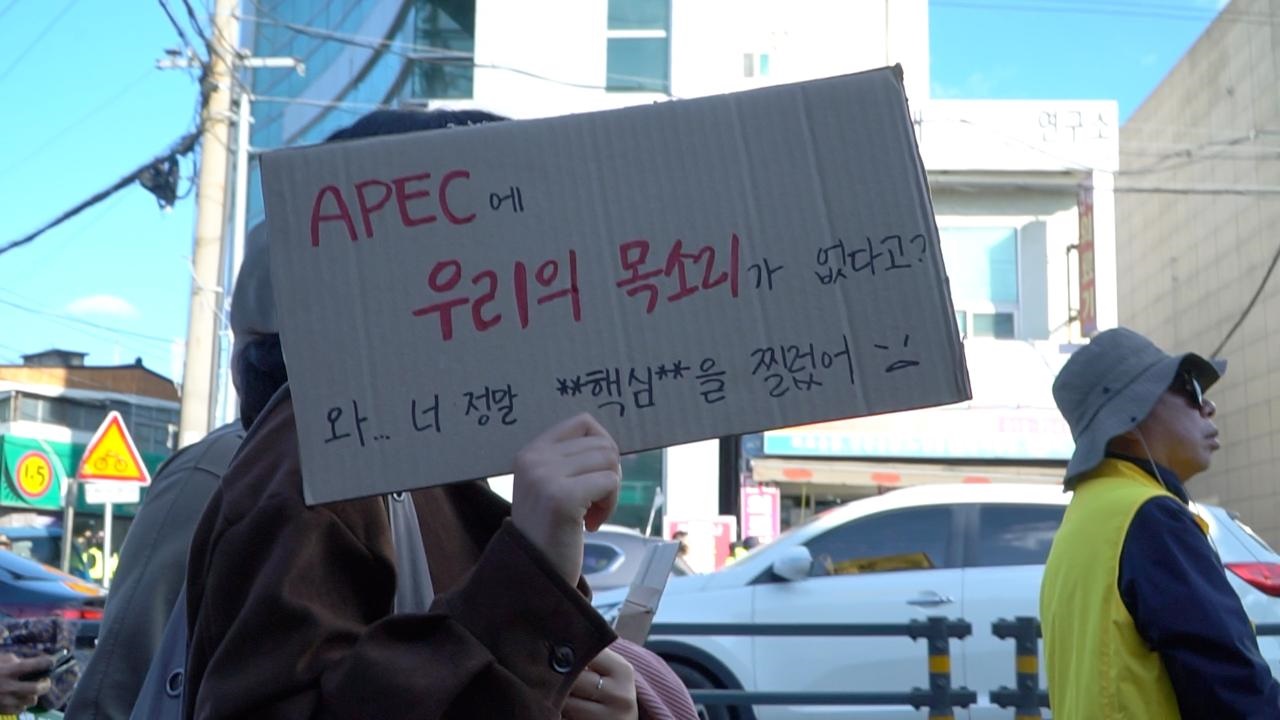 APEC에
우리의 목소리가 없다고?
와... 너 정말 **핵심**을 찔렀어
연구소
1.5